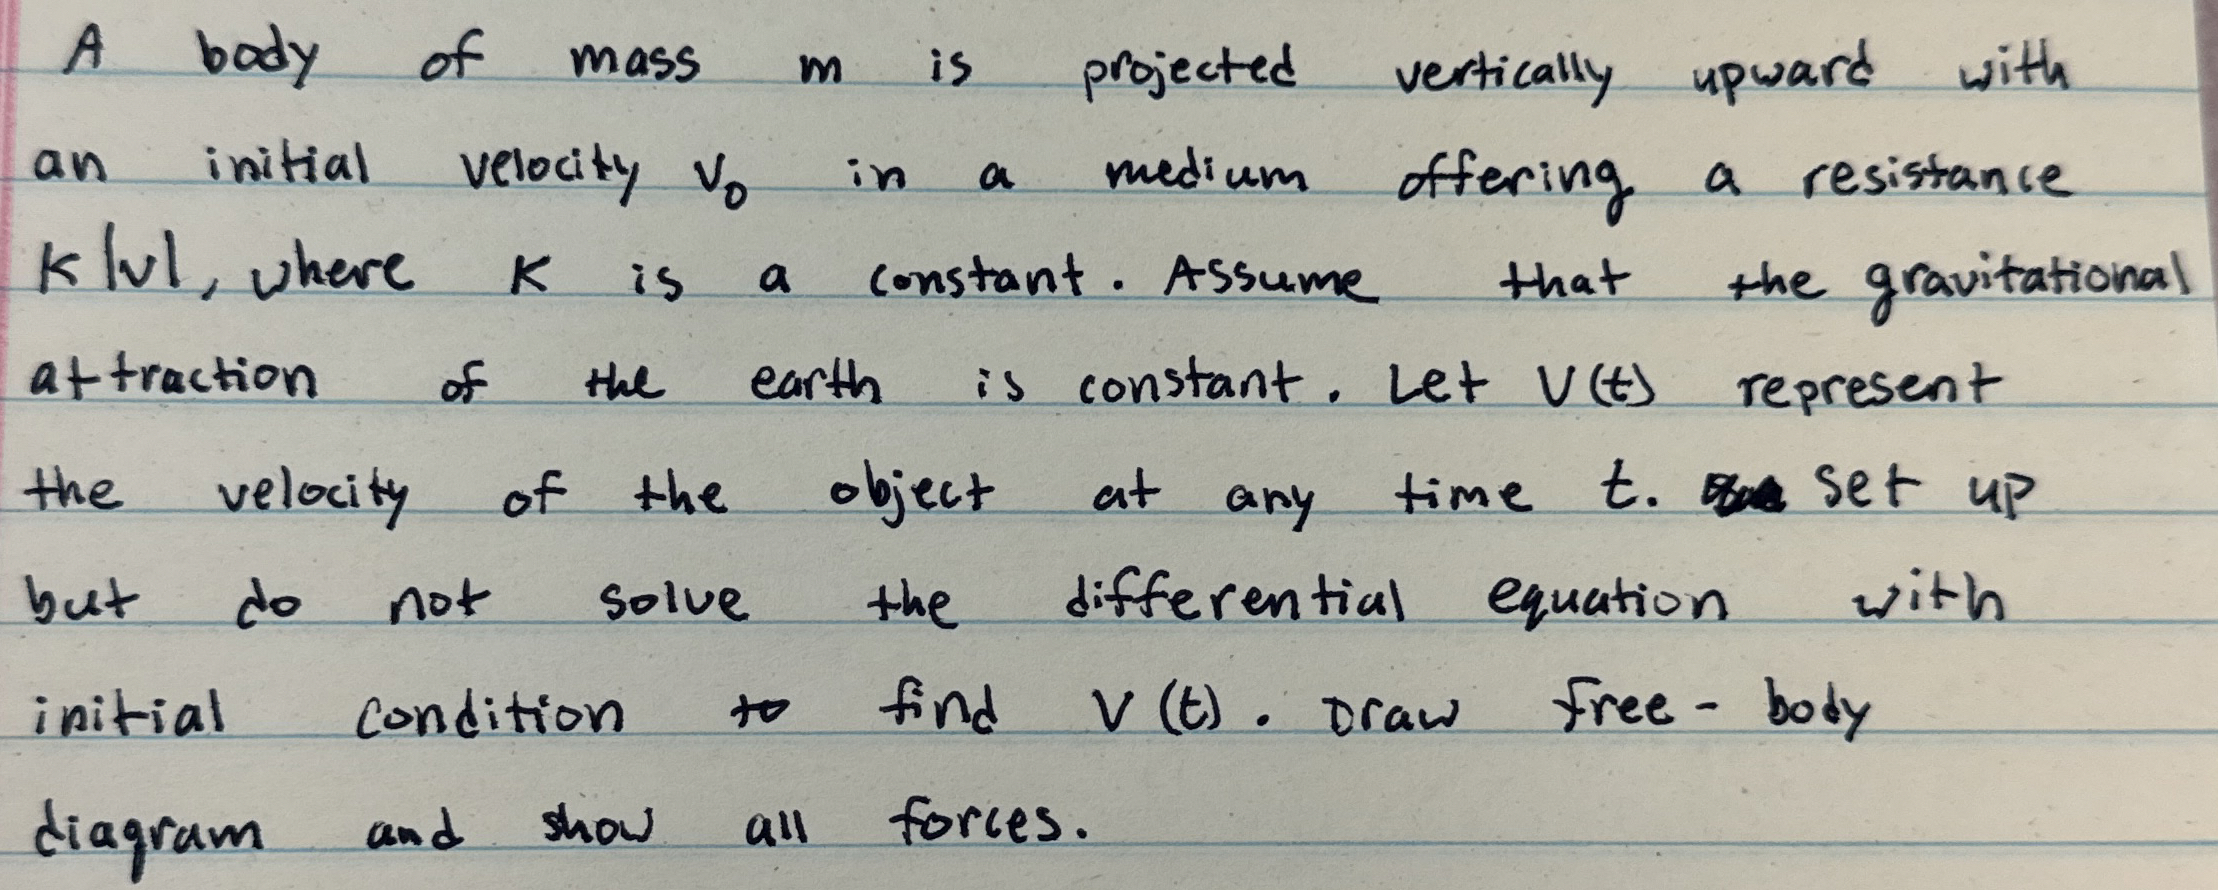 A body of mass m is projected vertically upward with
an initial velocity v₀ in a medium offering a resistance
K|v|, where K is a constant. Assume that the gravitational
attraction of the earth is constant. Let V(t) represent
the velocity of the object at any time t. set up
but do not solve the differential equation with
initial condition to find V(t). Draw free-body
diagram and show all forces.